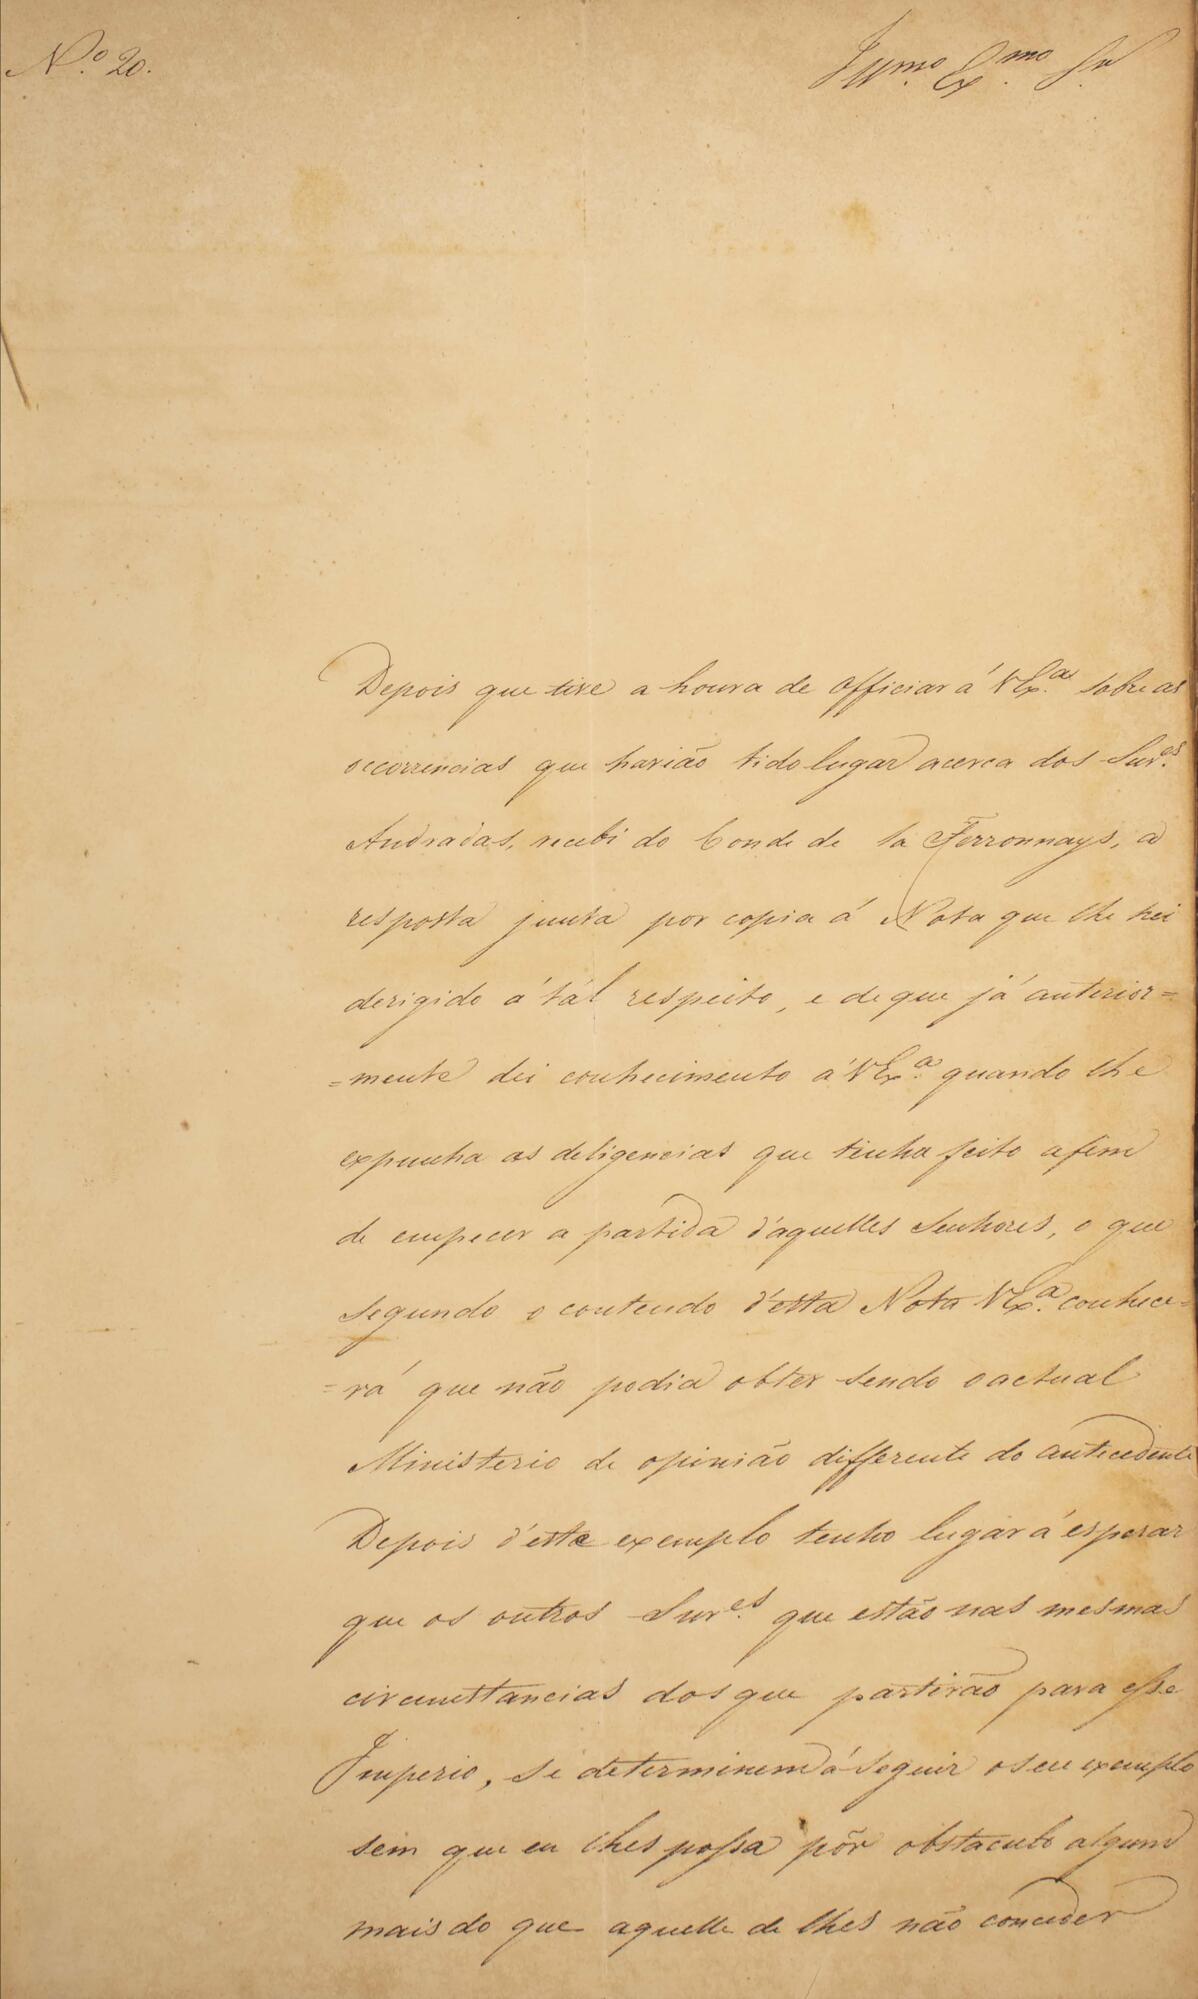 N.º 20.
Illmo. Exmo. Sr.
Depois que tive a honra de officiar á V Ex.ª sobre as
occorrencias que havião tido lugar acerca dos Snr.es
Andradas, recebi do Conde de la Ferronnays, a
resposta junta por copia á Nota que lhe hei
derigido á tál respeito, e de que já anterior=
=mente dei conhecimento á V Ex.ª quando lhe
expunha as deligencias que tinha feito afim
de empecer a partida d'aquelles Senhores, o que
segundo o contendo d'esta Nota V Ex.ª conhece=
=rá que não podia obter sendo o actual
Ministerio de opinião differente do antecedente
Depois d'este exemplo tenho lugar á esperar
que os outros Snr.es que estão nas mesmas
circunstancias dos que partirão para esse
Imperio, se determinem á seguir o seu exemplo
sem que eu lhes possa pôr obstaculo algum
mais do que aquelle de lhes não conceder